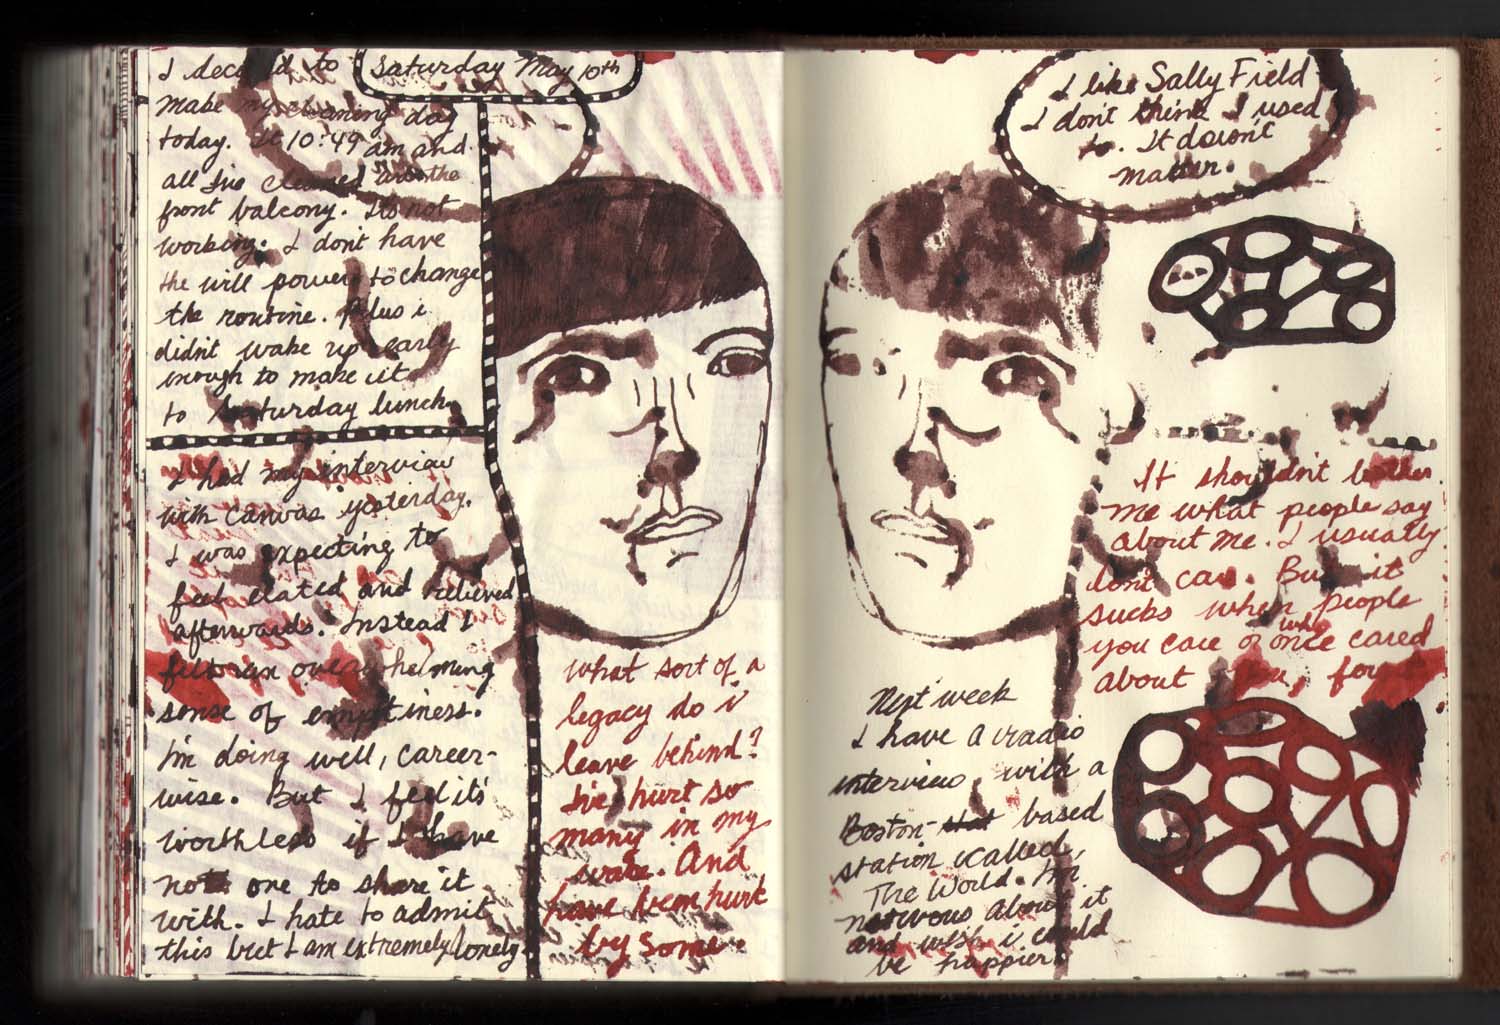 Saturday May 10th
I decided to
make my cleaning day
today. It 10:49 am and
all I've cleaned are the
front balcony. Its not
working. I don't have
the will power to change
the routine. Plus i
didn't wake up early
enough to make it
to Saturday lunch.
I had my interview
with canvas yesterday.
I was expecting to
feel elated and relieved
afterwards. Instead I
felt an overwhelming
sense of emptiness.
I'm doing well, career-
wise. But I feel it's
worthless if I have
no one to share it
with. I hate to admit
this but I am extremely lonely.
what sort of a
legacy do i
leave behind?
I've hurt so
many in my
wake. And
have been hurt
by some.
I like Sally Field
I don't think I used
to. It doesn't
matter.
It shouldn't bother
me what people say
about me. I usually
don't care. But it
sucks when people
you care or once cared
about
Next week
I have a radio
interview with a
Boston based
station called,
The World. I'm
nervous about it
and wish i could
be happier.